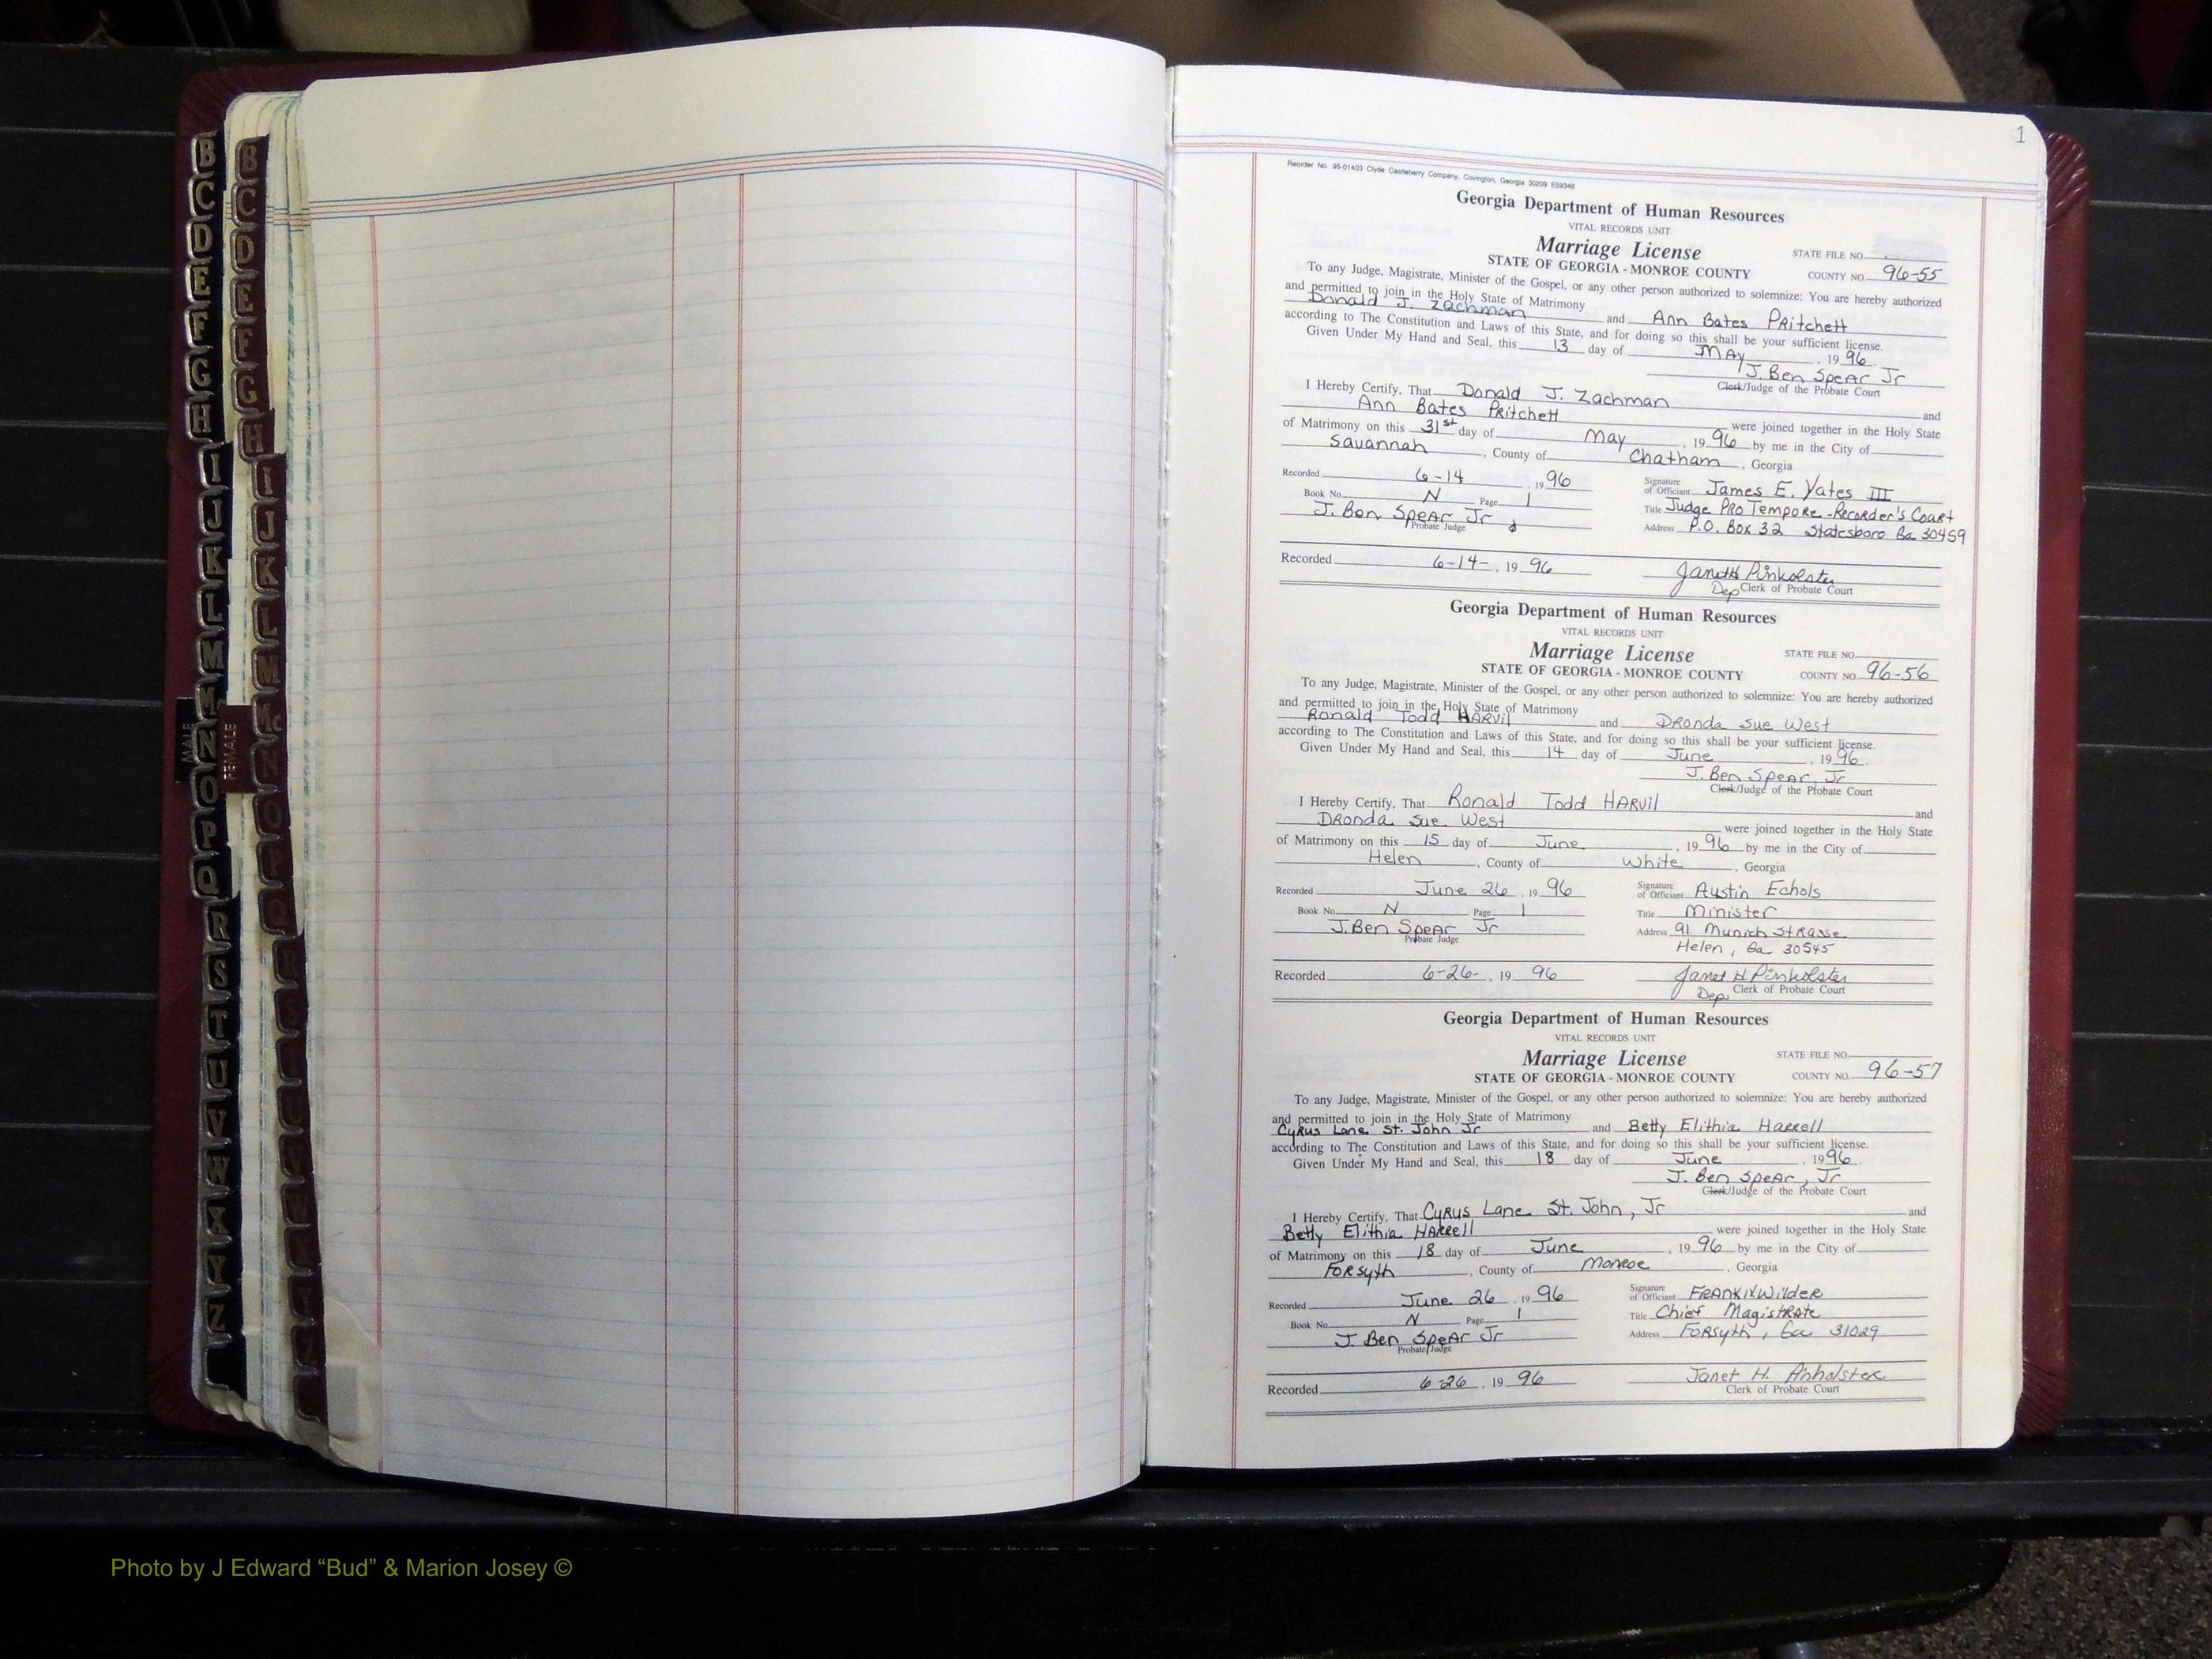 B
C
D
E
F
G
H
I
J
K
L
M
Mc
N
O
P
Q
R
S
T
U
V
W
X
Y
Z
MALE
B
C
D
E
F
G
H
I
J
K
L
M
Mc
N
O
P
Q
FEMALE
1
Reorder No. 95-01403 Clyde Castleberry Company, Covington, Georgia 30209 E59348
Georgia Department of Human Resources
VITAL RECORDS UNIT
Marriage License
STATE FILE NO.
STATE OF GEORGIA - MONROE COUNTY
COUNTY NO. 96-55
To any Judge, Magistrate, Minister of the Gospel, or any other person authorized to solemnize: You are hereby authorized
and permitted to join in the Holy State of Matrimony
Donald J. Zachman and Ann Bates Pritchett
according to The Constitution and Laws of this State, and for doing so this shall be your sufficient license.
Given Under My Hand and Seal, this 13 day of MAY, 1996.
J. Ben Spear Jr
Clerk/Judge of the Probate Court
I Hereby Certify, That Donald J. Zachman and
Ann Bates Pritchett were joined together in the Holy State
of Matrimony on this 31st day of May, 1996 by me in the City of
Savannah, County of Chatham, Georgia
Recorded 6-14, 1996
Signature of Officiant James E. Yates III
Book No. N Page 1
Title Judge Pro Tempore-Recorder's Court
J. Ben Spear Jr
Probate Judge
Address P.O. Box 32 Statesboro Ga 30459
Recorded 6-14-, 1996
Janet H Pinholster
Dep Clerk of Probate Court
Georgia Department of Human Resources
VITAL RECORDS UNIT
Marriage License
STATE FILE NO.
STATE OF GEORGIA - MONROE COUNTY
COUNTY NO. 96-56
To any Judge, Magistrate, Minister of the Gospel, or any other person authorized to solemnize: You are hereby authorized
and permitted to join in the Holy State of Matrimony
Ronald Todd HARVil and DRonda Sue West
according to The Constitution and Laws of this State, and for doing so this shall be your sufficient license.
Given Under My Hand and Seal, this 14 day of June, 1996.
J. Ben Spear, Jr
Clerk/Judge of the Probate Court
I Hereby Certify, That Ronald Todd HARVil and
DRonda Sue West were joined together in the Holy State
of Matrimony on this 15 day of June, 1996 by me in the City of
Helen, County of White, Georgia
Recorded June 26, 1996
Signature of Officiant Austin Echols
Book No. N Page 1
Title Minister
J. Ben Spear Jr
Probate Judge
Address 91 Munich Strasse
Helen, Ga 30545
Recorded 6-26-, 1996
Janet H Pinholster
Dep Clerk of Probate Court
Georgia Department of Human Resources
VITAL RECORDS UNIT
Marriage License
STATE FILE NO.
STATE OF GEORGIA - MONROE COUNTY
COUNTY NO. 96-57
To any Judge, Magistrate, Minister of the Gospel, or any other person authorized to solemnize: You are hereby authorized
and permitted to join in the Holy State of Matrimony
Cyrus Lane St. John Jr and Betty Elithia Harrell
according to The Constitution and Laws of this State, and for doing so this shall be your sufficient license.
Given Under My Hand and Seal, this 18 day of June, 1996.
J. Ben Spear, Jr
Clerk/Judge of the Probate Court
I Hereby Certify, That Cyrus Lane St. John, Jr and
Betty Elithia HARRell were joined together in the Holy State
of Matrimony on this 18 day of June, 1996 by me in the City of
Forsyth, County of Monroe, Georgia
Recorded June 26, 1996
Signature of Officiant Wilder
Book No. N Page 1
Title Chief Magistrate
J. Ben Spear Jr
Probate Judge
Address Forsyth, Ga 31029
Recorded 6-26, 1996
Janet H. Pinholster
Clerk of Probate Court
Photo by J Edward “Bud” & Marion Josey ©